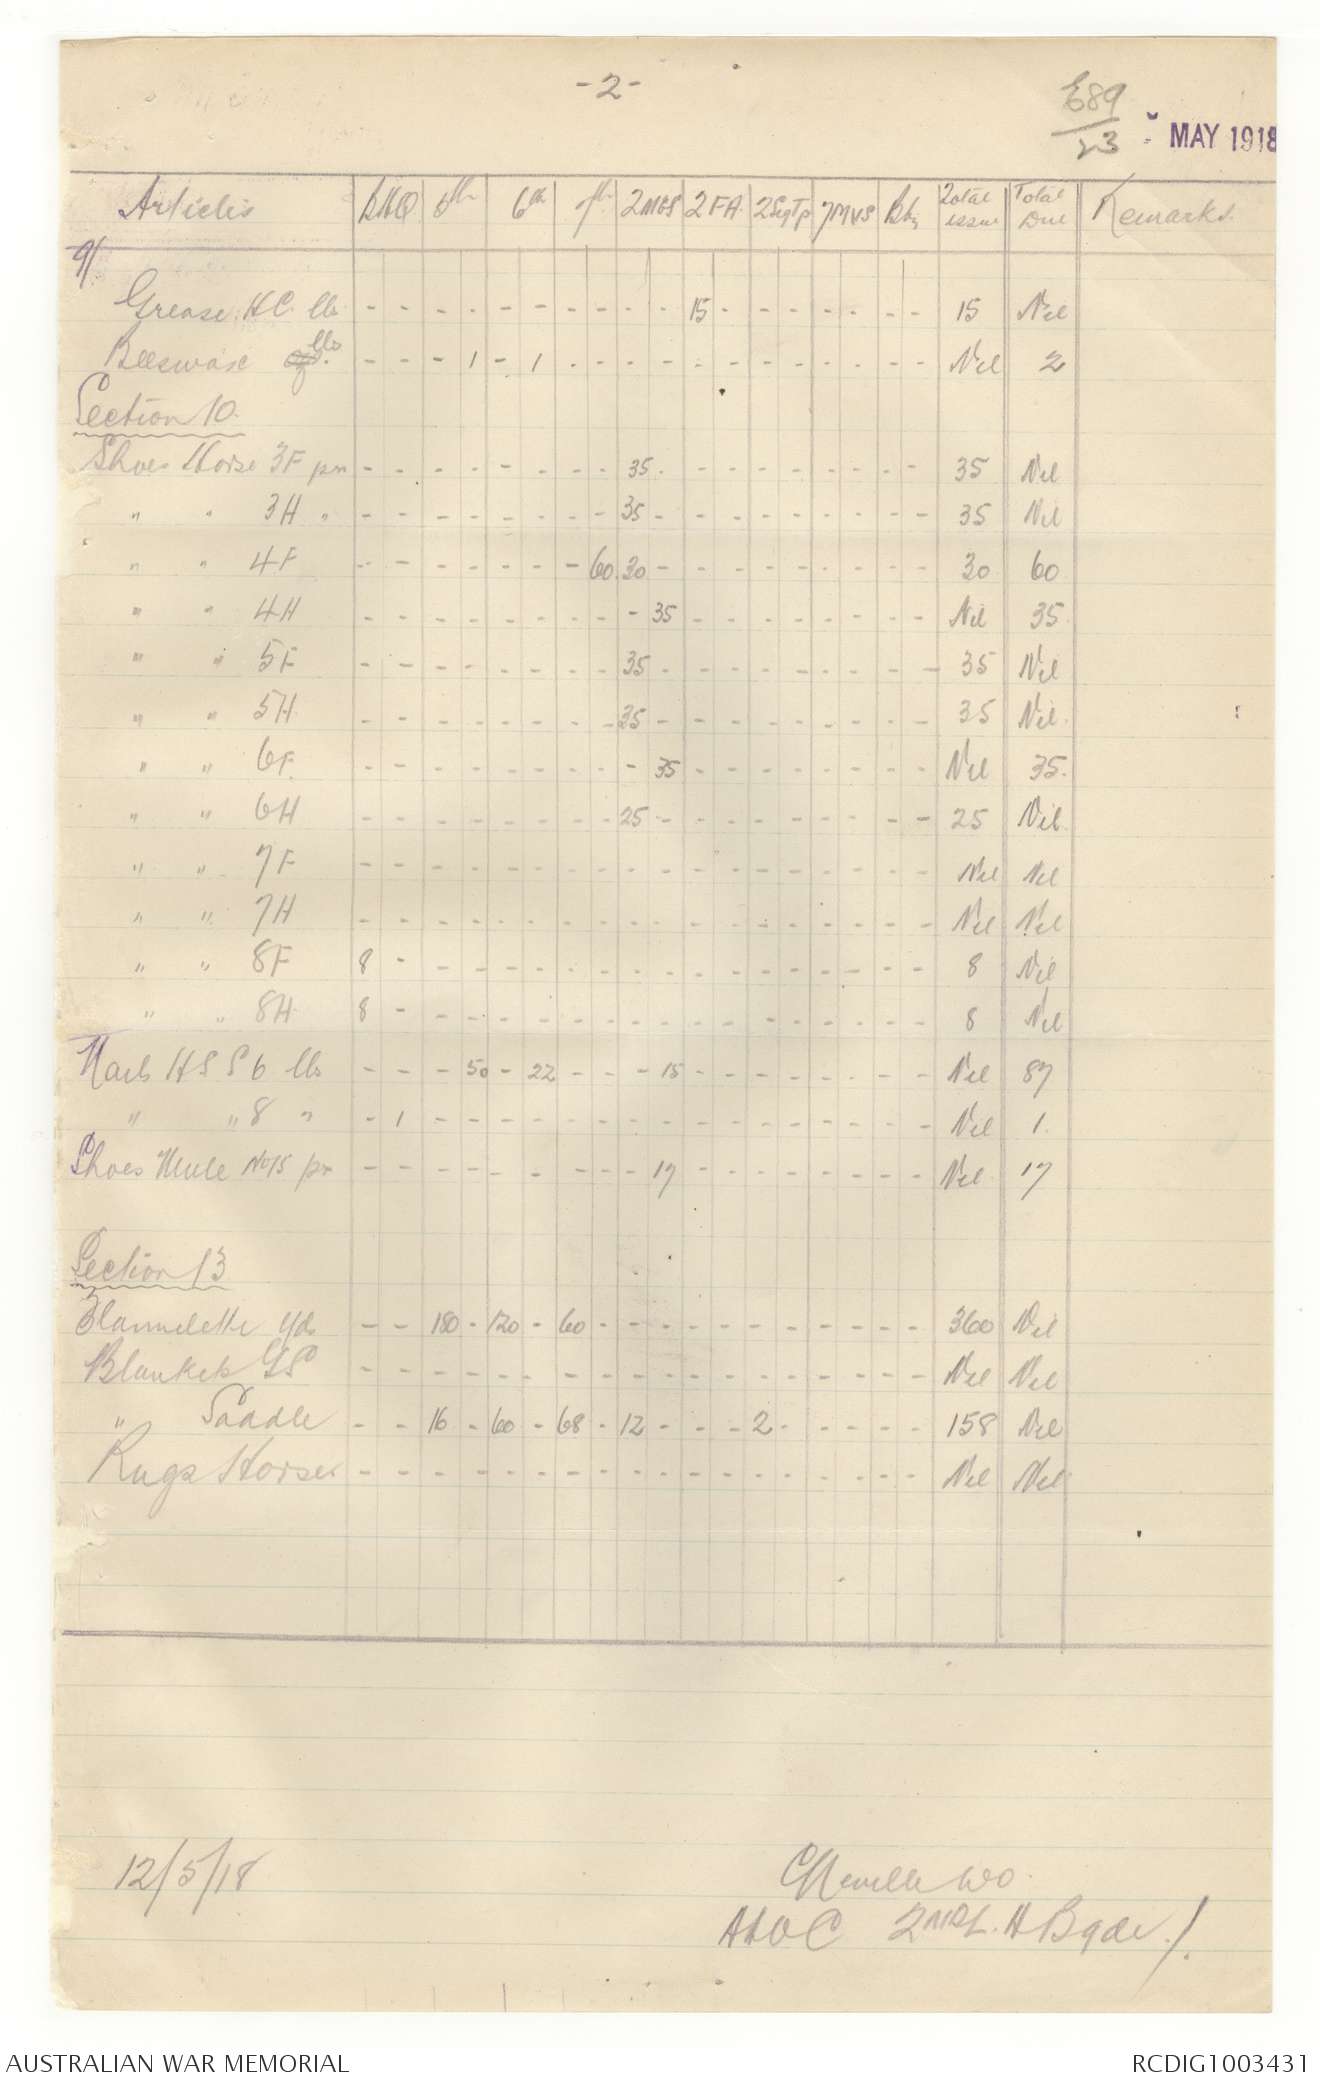 -2-
E89
23
MAY 1918
Articles BHQ 5th 6th 7th 2MGS 2FA 2SigTp 7MVS Bty Total issue Total Due Remarks
9/
Grease HC lbs - - - - - - - - - - 15 - - - - - - - 15 Nil
Beeswax lbs - - - 1 - 1 - - - - - - - - - - - - Nil 2
Section 10
Shoes Horse 3F prs - - - - - - - - 35 - - - - - - - - - 35 Nil
" " 3H " - - - - - - - - 35 - - - - - - - - - 35 Nil
" " 4F - - - - - - - 60 30 - - - - - - - - - 30 60
" " 4H - - - - - - - - - 35 - - - - - - - - Nil 35
" " 5F - - - - - - - - 35 - - - - - - - - - 35 Nil
" " 5H - - - - - - - - 35 - - - - - - - - - 35 Nil
" " 6F - - - - - - - - - 35 - - - - - - - - Nil 35
" " 6H - - - - - - - - 25 - - - - - - - - - 25 Nil
" " 7F - - - - - - - - - - - - - - - - - - Nil Nil
" " 7H - - - - - - - - - - - - - - - - - - Nil Nil
" " 8F 8 - - - - - - - - - - - - - - - - - 8 Nil
" " 8H 8 - - - - - - - - - - - - - - - - - 8 Nil
Nails HS S 6 lbs - - - 50 - 22 - - - 15 - - - - - - - - Nil 87
" " 8 " - 1 - - - - - - - - - - - - - - - - Nil 1
Shoes Mule No15 prs - - - - - - - - - 17 - - - - - - - - Nil 17
Section 13
Flannelette Yds - - 180 - 120 - 60 - - - - - - - - - - - 360 Nil
Blankets GS - - - - - - - - - - - - - - - - - - Nil Nil
" Saddle - - 16 - 60 - 68 - 12 - - - 2 - - - - - 158 Nil
Rugs Horse - - - - - - - - - - - - - - - - - - Nil Nil
12/5/18
C Neville WO
AAOC 2nd L. H Bgde.
AUSTRALIAN WAR MEMORIAL RCDIG1003431